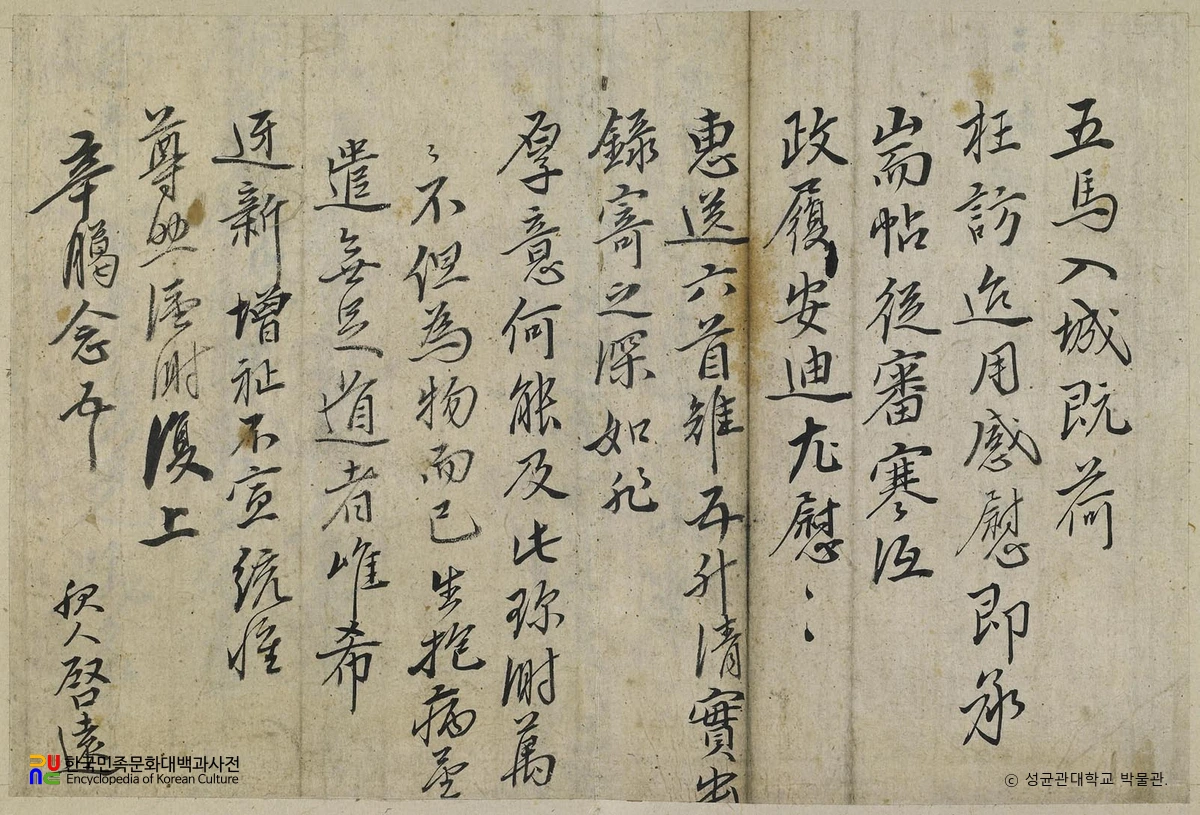 五馬入城既荷
枉訪迨用感慰即承
耑帖從審寒沍
政履安迪尤慰〻〻
惠送六首雉五升清實出
錄寄之深如非
厚意何能及此珎謝萬
〻不但為物而已生抱病
遣無足道者唯希
迓新增祉不宣統惟
尊照謹謝復上
辛臘念五
服人啓遠
한국민족문화대백과사전
Encyclopedia of Korean Culture
ⓒ 성균관대학교 박물관.